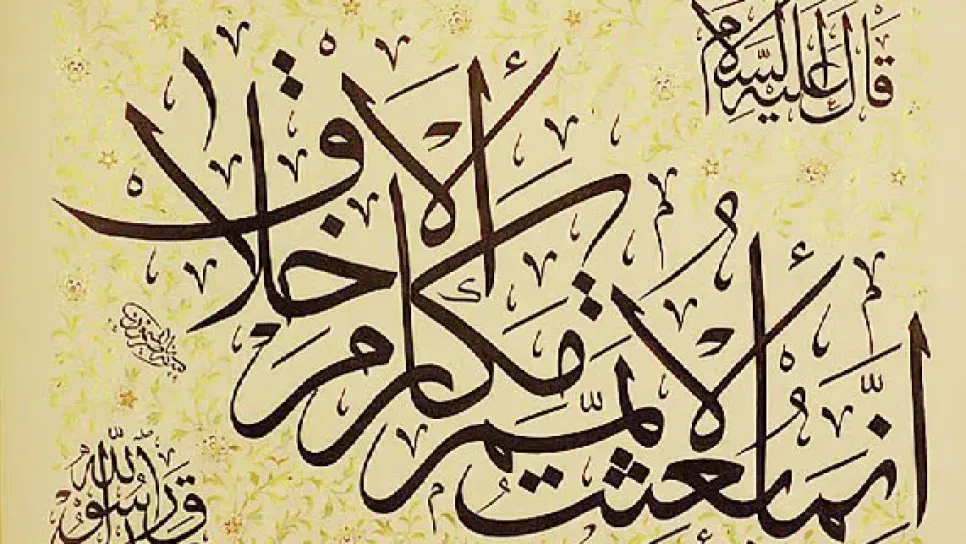 قَالَ عَلَيْهِ السَّلَام
إنَّمَا بُعِثْتُ لأُتَمِّمَ مَكَارِمَ الأَخْلاَقِ
رَسُولُ الله